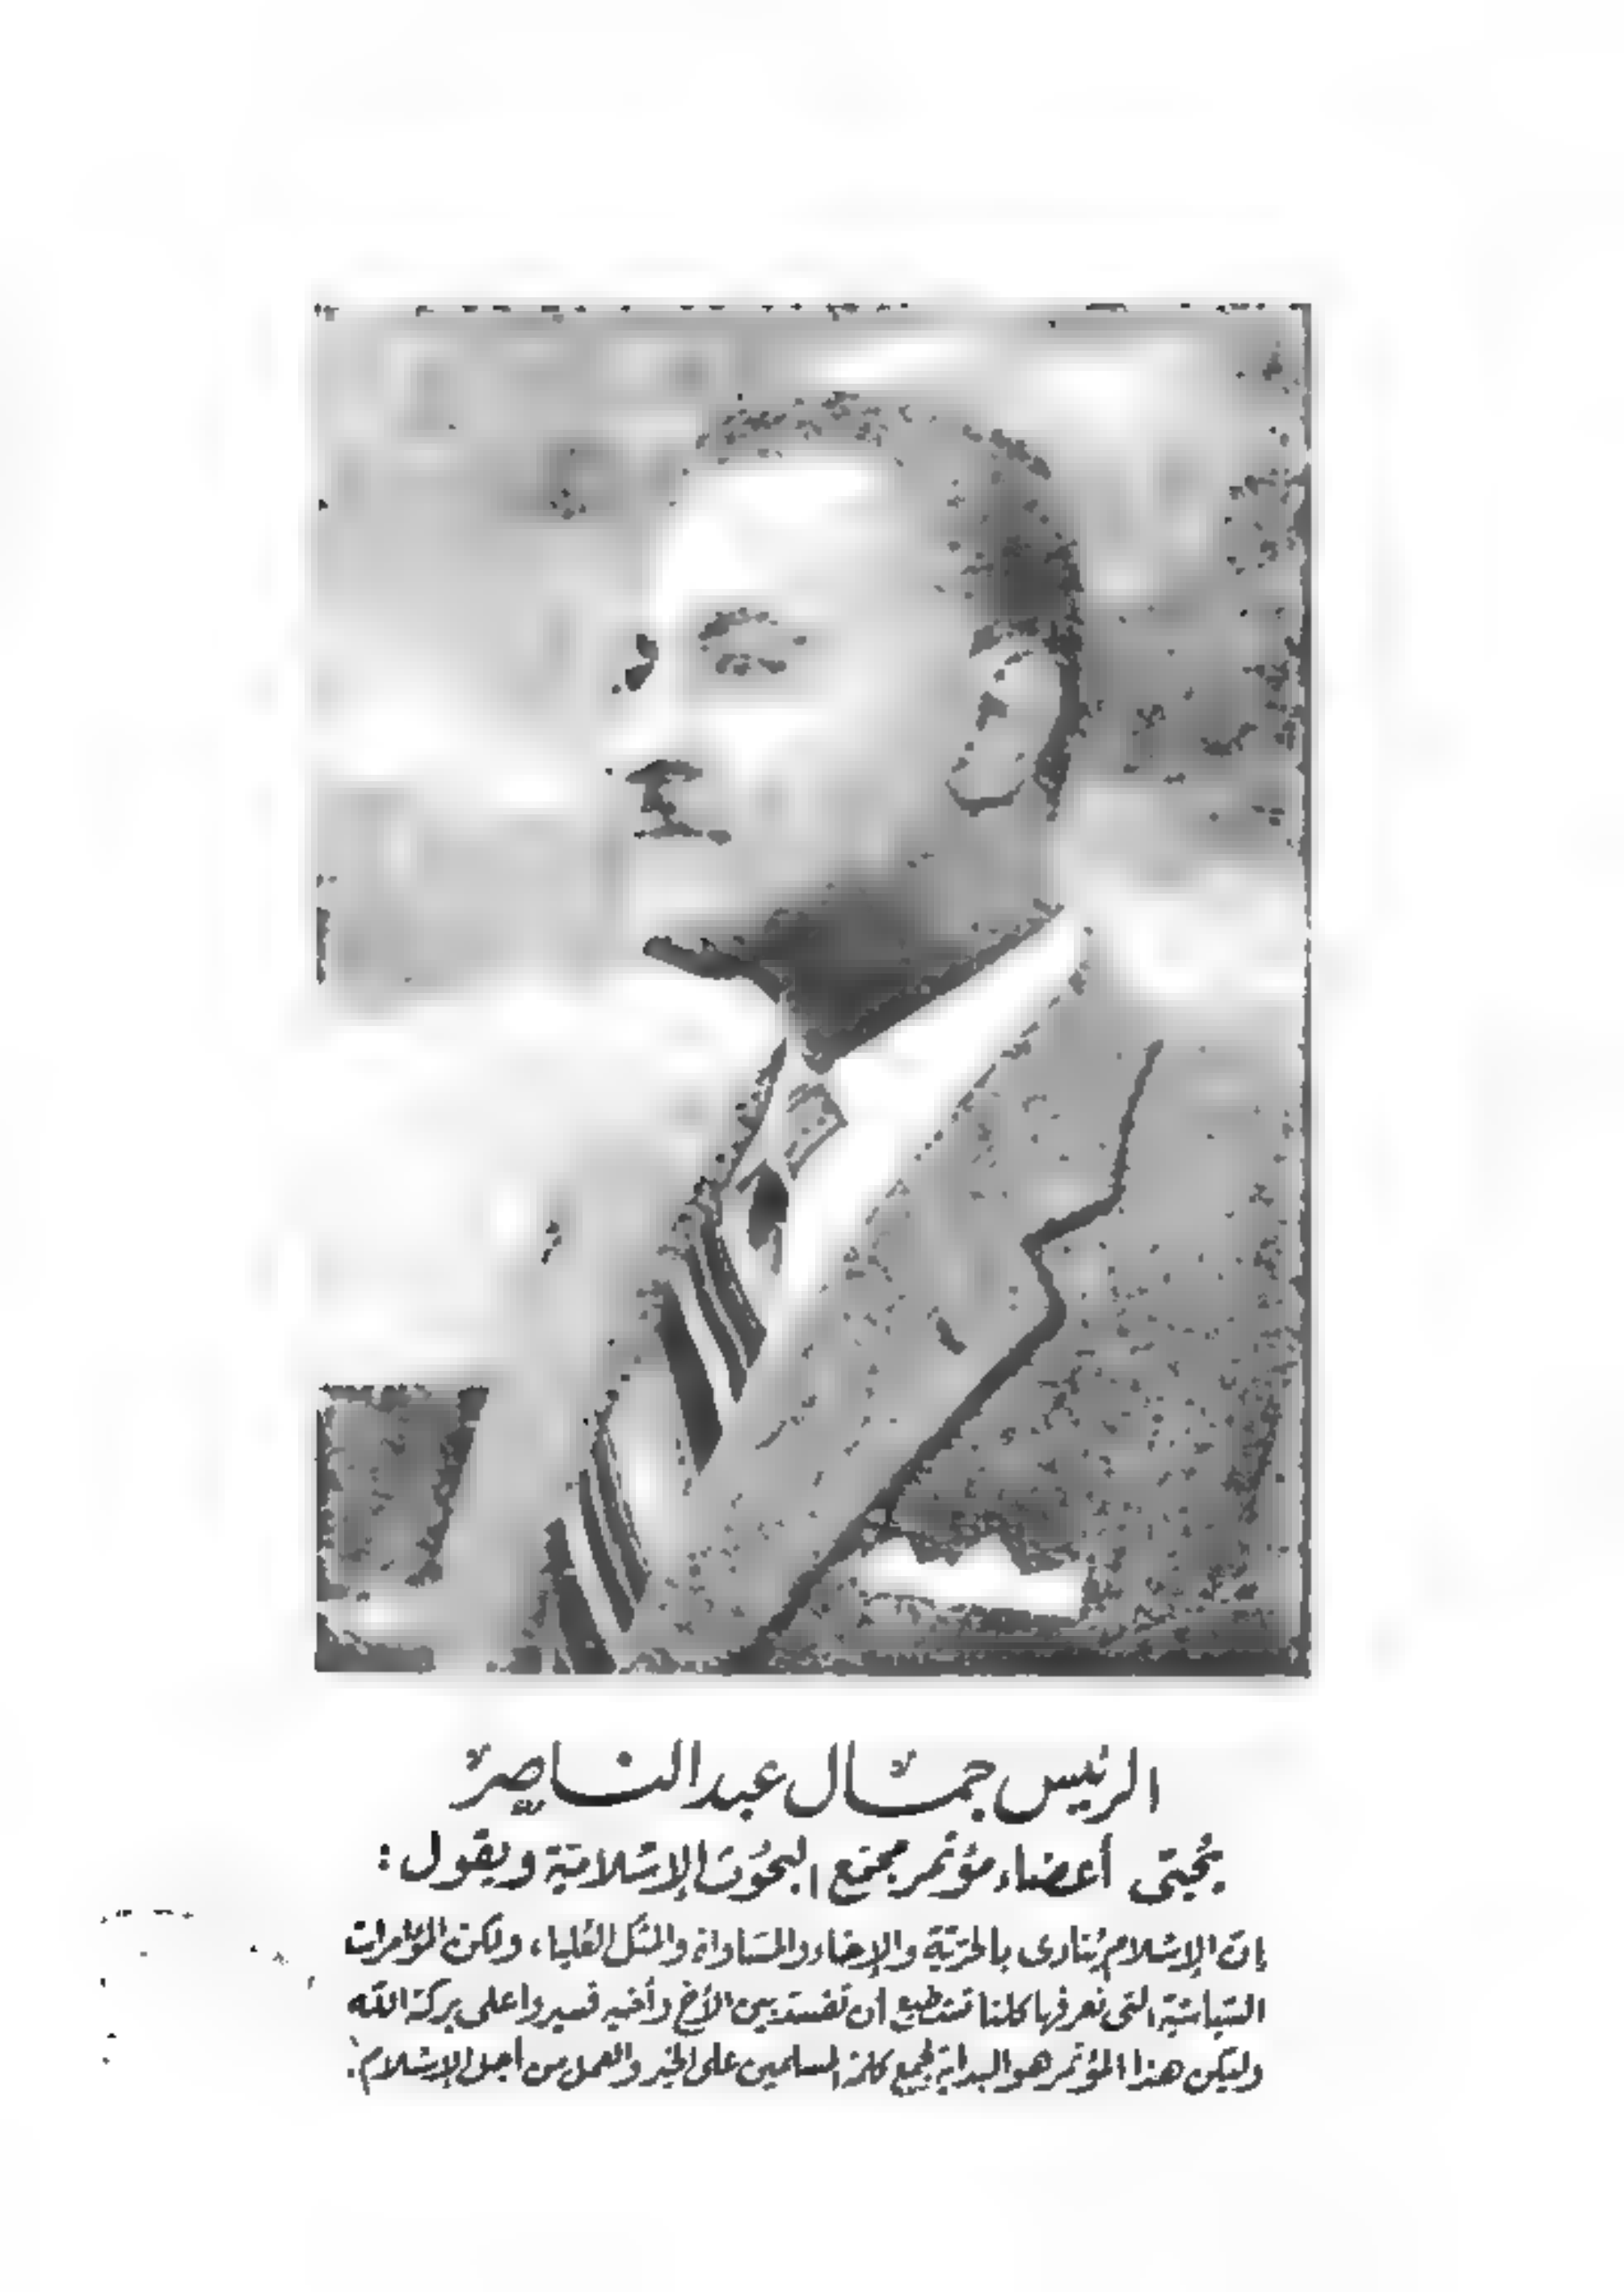 الرئيس جمال عبد الناصر
يحيى أعضاء مؤتمر مجمع البحوث الإسلامية ويقول :
إن الإسلام ينادى بالحرية والإخاء والمساواة والمثل العلياء ولكن المؤامرات
السياسية التى نعرفها كلنا تستطيع أن تفسد بين الأخ وأخيه فسيروا على بركة الله
وليكن هذا المؤتمر هو البداية لجمع كلمة المسلمين على الخير والعمل من أجل الإسلام .